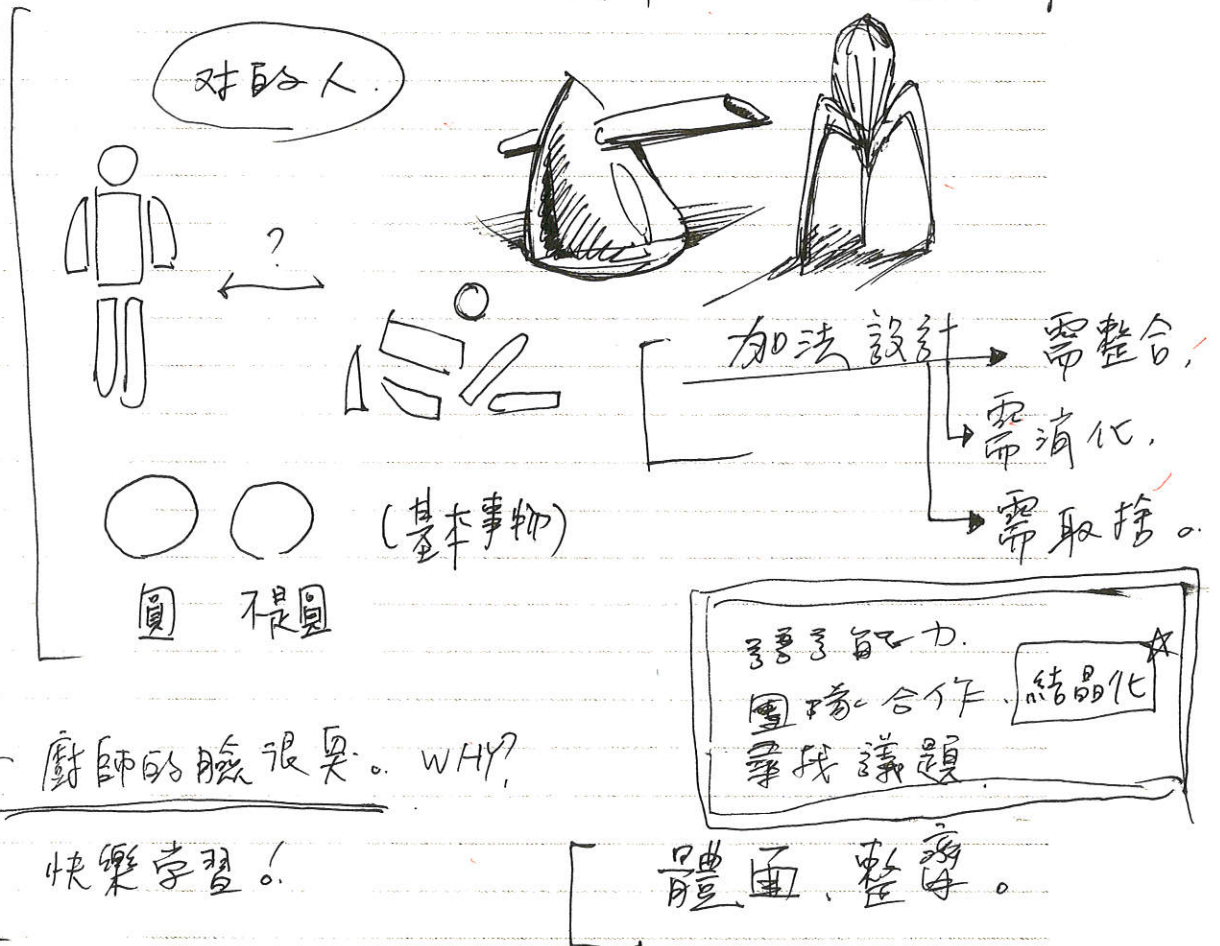 对的人.
?
加法設計
需整合,
需消化.
需取捨。
(基本事物)
圓 不是圓
能力.
團隊合作.
尋找議題.
結晶化
廚師的臉很臭。WHY?
快樂学習!
體面、整齊。